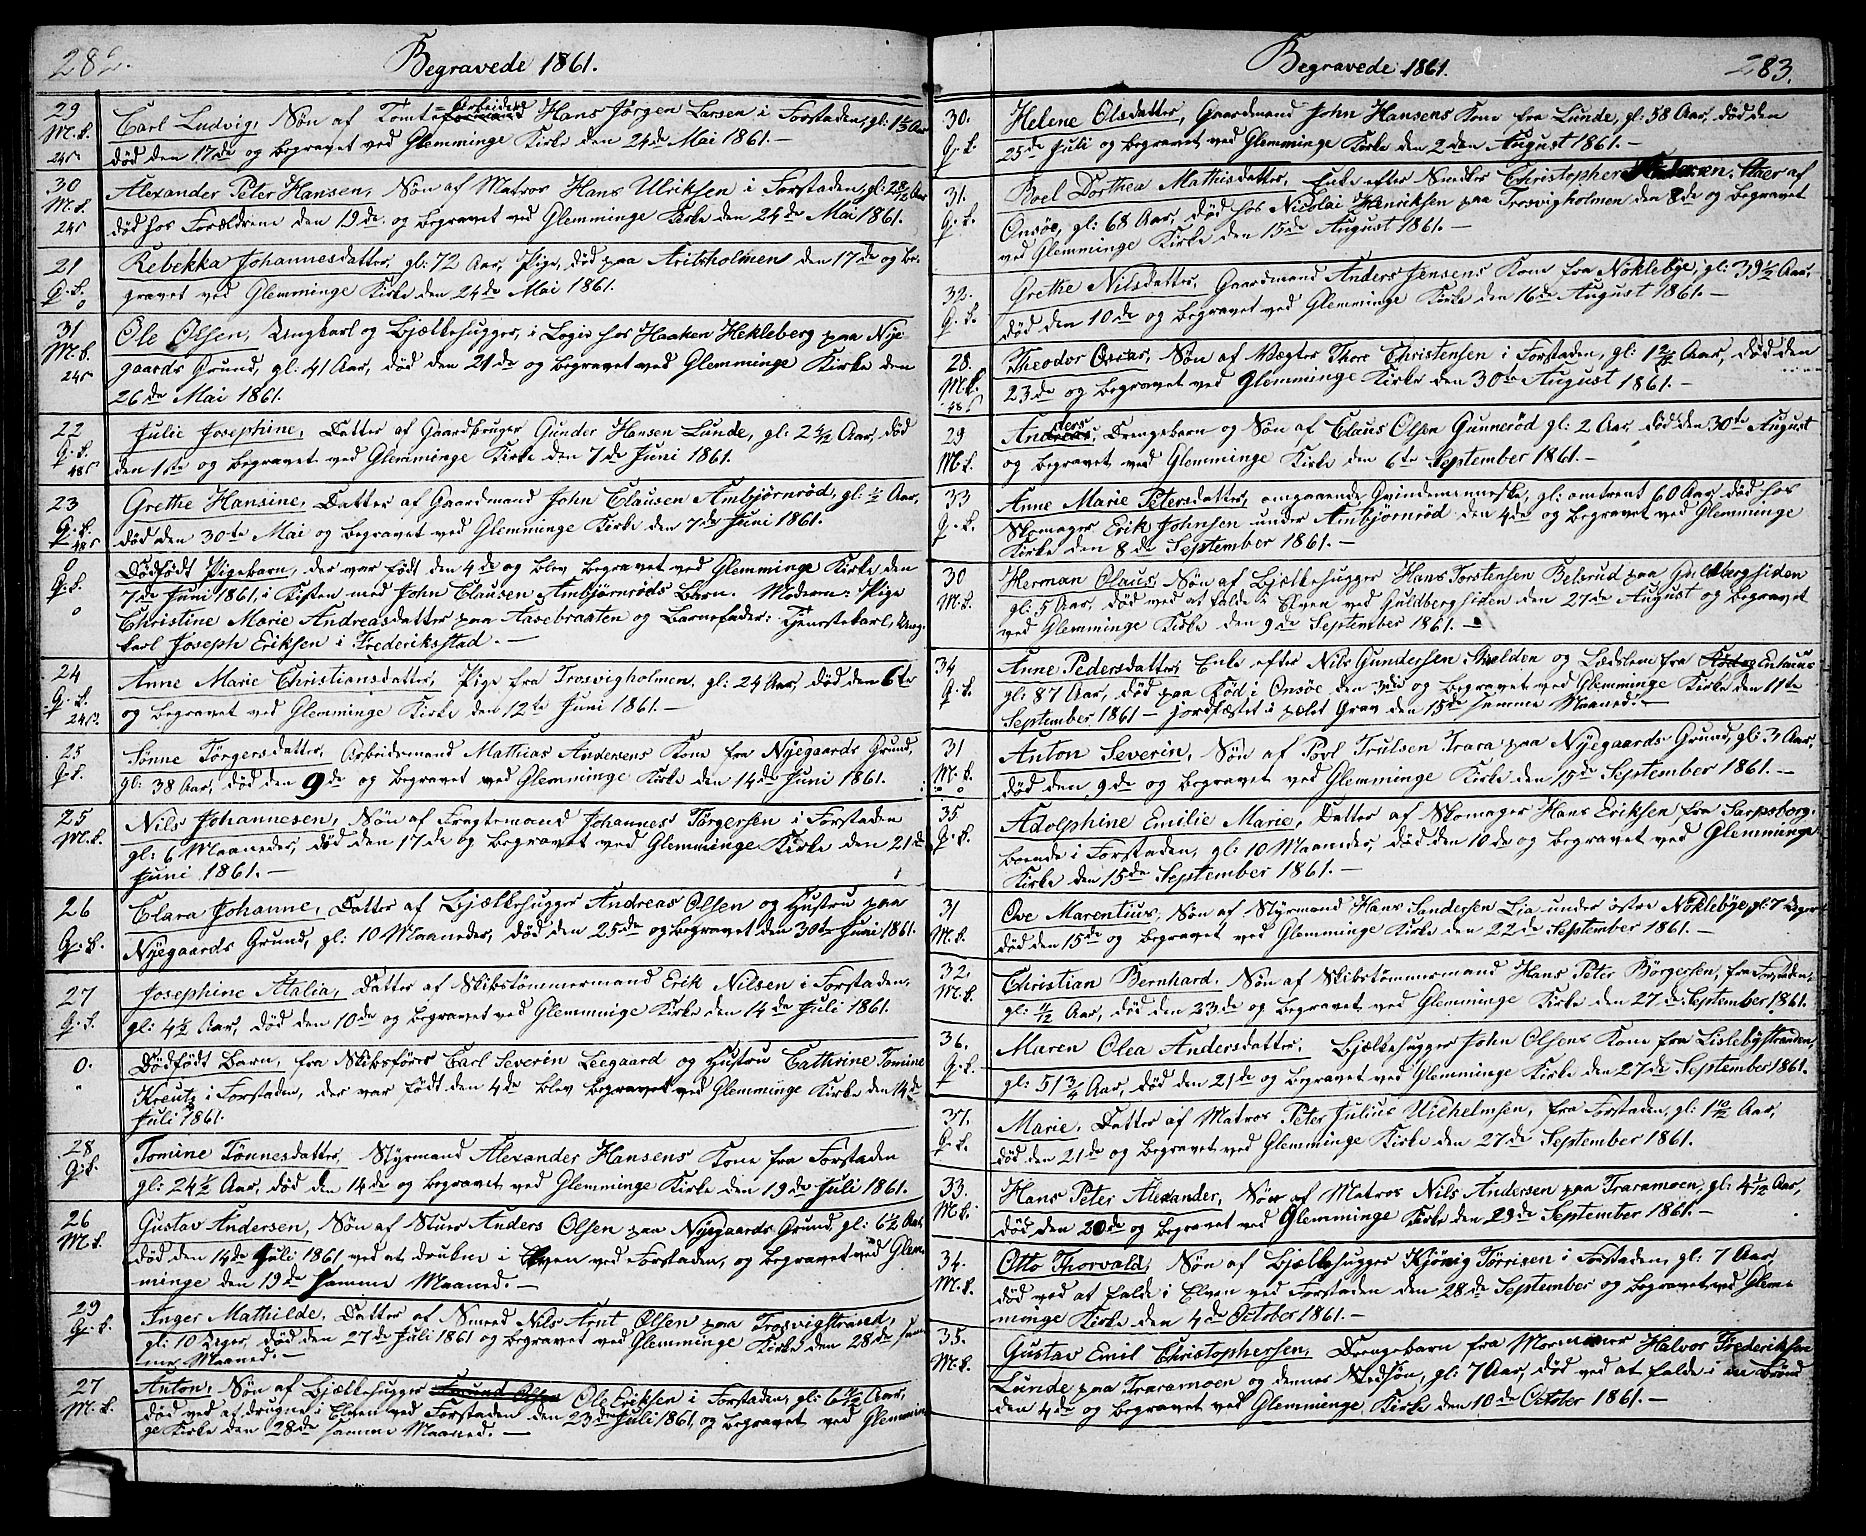 282.
Begravede 1861.
29 M.k. 24s
Carl Ludvig, Søn af Tomte=Arbeider Hans Jørgen Larsen i Forstaden, gl: 1 1/3 Aar
død den 17de og begravet ved Glemminge Kirke den 24de Mai 1861.
30 M.k. 24s
Alexander Peter Hansen, Søn af Matros Hans Ulriksen i Forstaden, gl: 2 8/12 Aar
død hos Forældrene den 19de og begravet ved Glemminge Kirke den 24de Mai 1861.
21 Q.k. 0
Rebekka Johannesdatter, gl: 72 Aar, Pige, død paa Aritsholmen den 17de og be-
gravet ved Glemminge Kirke den 24de Mai 1861.
31 M.k. 24s
Ole Olsen, Ungkarl og Bjælkehugger, i Logie hos Haaken Hekleberg paa Nye-
gaards Grund, gl: 41 Aar, død den 21de og begravet ved Glemminge Kirke den
26de Mai 1861.
22 Q.k. 48s
Julie Josephine, Datter af Gaardbruger Gunder Hansen Lunde, gl: 2 5/12 Aar, død
den 1ste og begravet ved Glemminge Kirke den 7de Juni 1861.
23 Q.k. 48s
Grethe Hansine, Datter af Gaardmand John Clausen Ambjørnrød, gl: 1/2 Aar,
død den 30te Mai og begravet ved Glemminge Kirke den 7de Juni 1861.
0 Q.k. 0
Dødfødt Pigebarn, der var født den 4de og blev begravet ved Glemminge Kirke den
7de Juni 1861, i Kisten med John Clausen Ambjørnrøds Barn. Modren: Pige
Christine Marie Andreasdatter paa Aasebraaten og Barnefader: Tjenestekarl, Ung-
karl Joseph Eriksen i Frederiksstad.—
24 Q.k. 24s
Anne Marie Christiansdatter, Pige fra Trosvigholmen, gl: 24 Aar, død den 6te
og begravet ved Glemminge Kirke den 12te Juni 1861.—
25 Q.k.
Tønne Törgersdatter, Arbeidsmand Mathias Andersens Kone fra Nyegaards Grund,
gl: 38 Aar, død den 9de og begravet ved Glemminge Kirke den 14de Juni 1861.
25 M.k.
Nils Johannesen, Søn af Fragtemand Johannes Törgersen i Forstaden
gl: 6 Maaneder, død den 17de og begravet ved Glemminge Kirke den 21de
Juni 1861.—
26 Q.k.
Clara Johanne, Datter af Bjælkehugger Andreas Olsen og Hustru paa
Nyegaards Grund, gl: 10 Maaneder, død den 25de og begravet den 30te Juni 1861.
27 Q.k.
Josephine Atalia, Datter af Skibstømmermand Erik Nilsen i Forstaden,
gl: 4 1/2 Aar, død den 10de og begravet ved Glemminge Kirke den 14de Juli 1861.
0.
Dødfødt Barn, fra Skibsfører Carl Severin Leegaard og Hustru Cathrine Tomine
Kreutz i Forstaden, der var født den 4de blev begravet ved Glemminge Kirke den 14de
Juli 1861.
28 Q.k.
Tomine Tønnesdatter, Styrmand Alexander Hansens Kone fra Forstaden
gl: 24 1/2 Aar, død den 14de og begravet ved Glemminge Kirke den 19de Juli 1861.
26 M.k.
Gustav Andersen, Søn af Stuer Anders Olsen paa Nyegaards Grund, gl: 6 1/2 Aar,
død den 14de Juli 1861 ved at drukne i Elven ved Forstaden, og begravet ved Glem-
minge den 19de samme Maaned.—
29 Q.k.
Inger Mathilde, Datter af Smed Nils Arnt Olsen paa Trosvigstrand,
gl: 10 Uger, død den 27de Juli 1861 og begravet ved Glemminge Kirke den 28de, sam-
me Maaned.—
27 M.k.
Anton, Søn af Bjælkehugger Ole Eriksen i Forstaden, gl: 6 Aar,
død ved at drugne i Elven ved Forstaden den 23de Juli 1861, og begravet ved Glemmin-
ge Kirke den 28de samme Maaned.—
Begravede 1861.
283.
30. Q.k.
Helene Olsdatter, Gaardmand John Hansens Kone fra Lunde, gl: 58 Aar, død den
25de Juli og begravet ved Glemminge Kirke den 2den August 1861.—
31. Q.k.
Boel Dorthea Mathisdatter, Enke efter Snedker Christopher Staer af
Onsøe, gl: 68 Aar, død hos Nicolai Henriksen paa Trosvigholmen, den 8de og begravet
ved Glemminge Kirke den 15de August 1861.—
32. Q.k.
Grethe Nilsdatter, Gaardmand Anders Jensens Kone fra Nøklebye, gl: 39 1/2 Aar,
død den 10de og begravet ved Glemminge Kirke den 16de August 1861.—
28. M.k. 48s
Theodor Oscar, Søn af Vægter Thore Christensen i Forstaden, gl: 1 2/12 Aar, død den
23de og begravet ved Glemminge Kirke den 30te August 1861.—
29 M.k.
Anders, Drengebarn og Søn af Claus Olsen Gunnerød gl: 2 Aar, død den 30te August
og begravet ved Glemminge Kirke den 6te September 1861.—
33 Q.k.
Anne Marie Petersdatter, omgaaende Qvindemenneske, gl: omtrent 60 Aar, død hos
Skomager Erik Johnsen under Ambjørnrød den 4de og begravet ved Glemminge
Kirke den 8de September 1861.—
30 M.k.
Herman Olaus, Søn af Bjælkehugger Hans Torstensen Belsrud paa Guldbergsiden
gl: 5 Aar, død ved at falde i Elven ved Guldbergsiden den 27de August og begravet
ved Glemminge Kirke den 9de September 1861.—
34 Q.k.
Anne Pedersdatter, Enke efter Nils Gundersen Molden og Lædslem fra Enhuus
gl: 87 Aar, død paa Rød i Onsøe den 3die og begravet ved Glemminge Kirke den 11te
September 1861 — jordfæstet i Grav den 15de samme Maaned.—
31 M.k.
Anton Severin, Søn af Povl Trulsen Trara paa Nyegaards Grund, gl: 3 Aar,
død den 9de og begravet ved Glemminge Kirke den 15de September 1861.—
35 Q.k.
Adolphine Emilie Marie, Datter af Skomager Hans Eriksen fra Sarpsborg
boende i Forstaden, gl: 10 Maaneder, død den 10de og begravet ved Glemminge
Kirke den 15de September 1861.—
31 M.k.
Ove Marentius, Søn af Styrmand Hans Sandersen Lia under østre Nøklebye, gl: 7 Uger
død den 15de og begravet ved Glemminge Kirke den 22de September 1861.—
32. M.k.
Christian Bernhard, Søn af Skibstømmermand Hans Peter Börgersen, fra Forstaden,
gl: 1/12 Aar, død den 23de og begravet ved Glemminge Kirke den 27de September 1861.
36. Q.k.
Maren Olea Andersdatter, Bjælkehugger John Olsens Kone fra Lislebystranden,
gl: 51 3/4 Aar, død den 21de og begravet ved Glemminge Kirke den 27de September 1861.
37. Q.k.
Marie, Datter af Matros Peter Julius Wilhelmsen, fra Forstaden, gl: 1 10/12 Aar,
død den 21de og begravet ved Glemminge Kirke den 27de September 1861.
33. M.k.
Hans Peter Alexander, Søn af Matros Nils Andersen paa Traramoen, gl: 4 5/12 Aar,
død den 20de og begravet ved Glemminge Kirke den 29de September 1861.—
34. M.k.
Otto Thorvald, Søn af Bjælkehugger Kjønig Tørrisen i Forstaden, gl: 7 Aar,
død ved at falde i Elven ved Forstaden den 28de September og begravet ved Glem-
minge Kirke den 4de October 1861.—
35. M.k.
Gustav Emil Christophersen, Drengebarn fra Halvor Frederiksen
Lunde paa Traramoen og dennes Stedsøn, gl: 7 Aar, død ved at falde i en Brønd
den 4de og begravet ved Glemminge Kirke den 10de October 1861.—